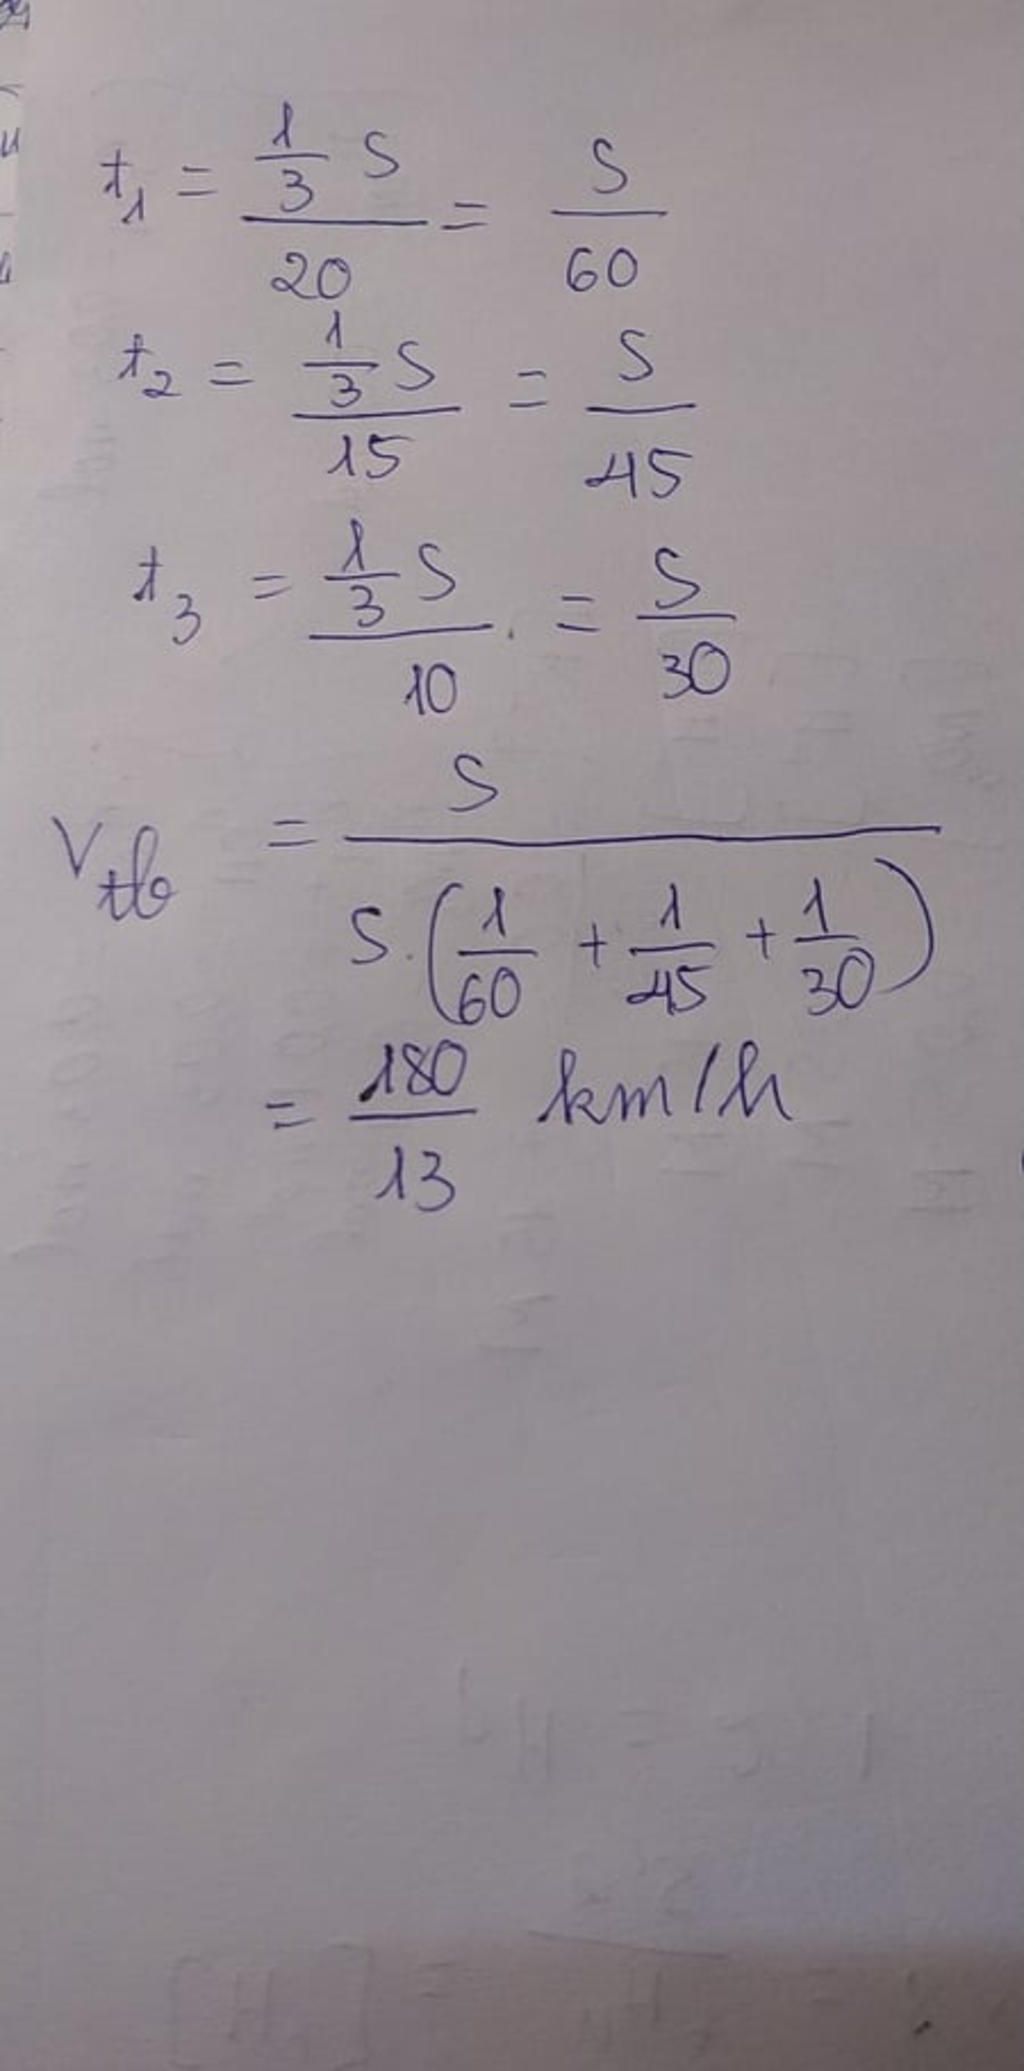 t₁ = (1/3 S)/20 = S/60
t₂ = (1/3 S)/15 = S/45
t₃ = (1/3 S)/10 . = S/30
V_tb = S/(S.(1/60 + 1/45 + 1/30))
= 180/13 km/h